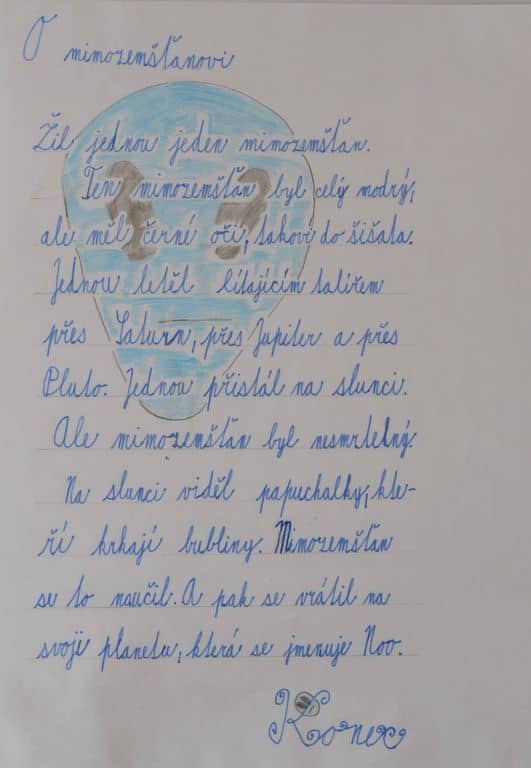 O mimozemšťanovi
Žil jednou jeden mimozemšťan.
Ten mimozemšťan byl celý modrý,
ale měl černé oči, takové do šišata.
Jednou letěl lítajícím talířem
přes Saturn, přes Jupiter a přes
Pluto. Jednou přistál na slunci.
Ale mimozemšťan byl nesmrtelný.
Na slunci viděl papuchalky, kte-
ří krkají bubliny. Mimozemšťan
se to naučil. A pak se vrátil na
svoji planetu, která se jmenuje Noo.
Konec